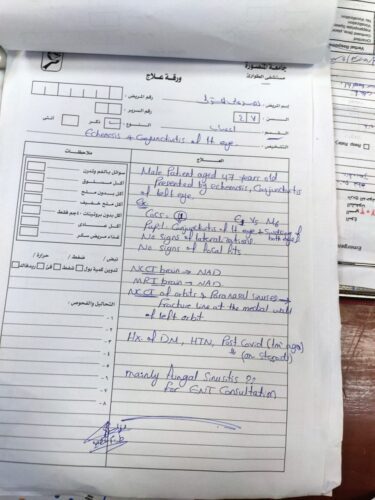 جامعة المنصورة
مستشفى الطوارئ
ورقة علاج
رقم المريض:
إسم المريض:
رقم السرير:
السن: ٤٧
النوع: ذكر أنثى
القسم:
التشخيص:
Echemosis & Conjunctivitis of lt eye.
ملاحظات
العلاج
سوائل بالفم وتدون
أكل مسلوق
أكل بدون ملح
أكل ملح خفيف
أكل بدون بروتينات
أكل عادى
غذاء مريض سكر
نبض / ضغط / حرارة /
تدوين كمية بول
التحاليل والفحوص:
١ -
٢ -
٣ -
٤ -
٥ -
٦ -
٧ -
٨ -
Male Patient aged 47 years old
Presented by echemosis, Conjunctivitis
of left eye.
GCS
E4 V5 M6
Pupil Conjunctivitis of lt eye & Swelling of both eyes
No signs of lateralizations
No signs of focal fits
NCCT brain → NAD
MRI brain → NAD
NCCT of orbits & Paranasal sinuses →
fracture line at the medial wall
of left orbit
Hx. of DM, HTN, Post Covid (1m ago)
(on steroids)
mainly fungal Sinusitis ??
For ENT Consultation